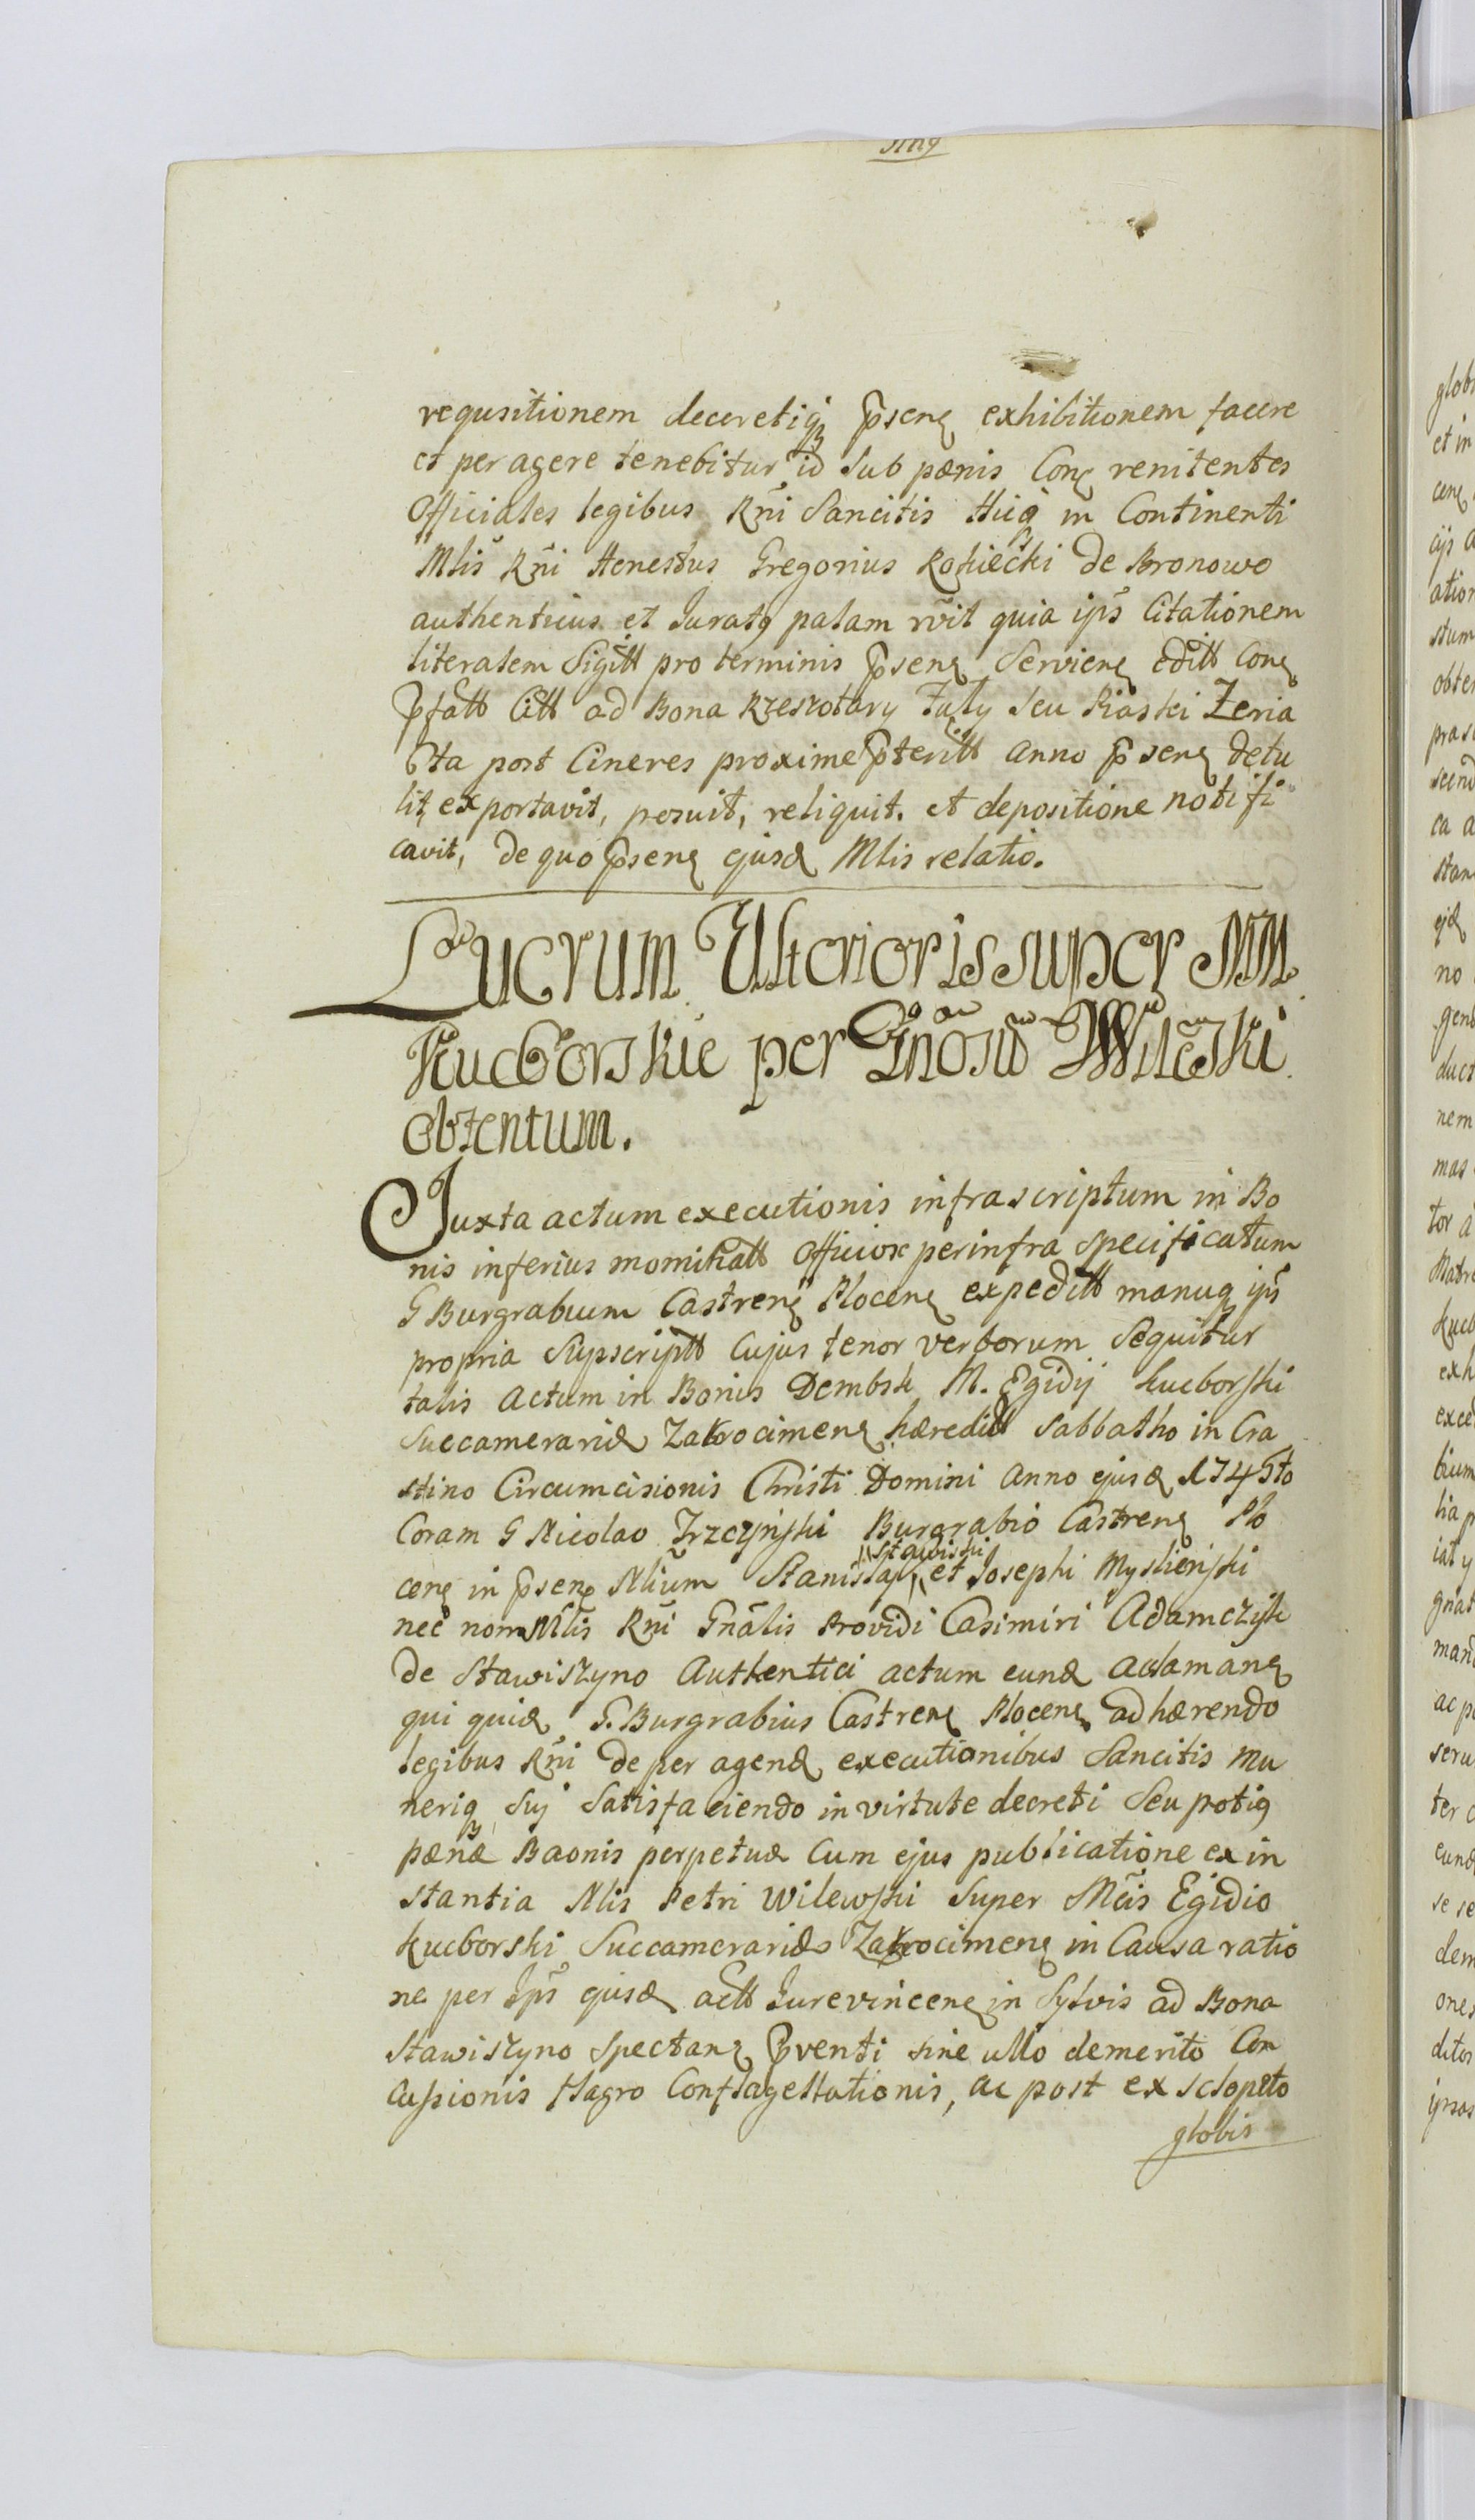 requsitionem decretiq p̄senę exhibitionem facere
et per agere tenebitur id sub pænis Conę renitentes
Officiales legibus Rn̄i Sancitis Hicq in Continenti
Mlis Rn̄i Honestus Gregorius Rokiecki de Bronowo
authenticus et Juratq palam rv̄it quia ip̄s Citationem
literalem Sigitt pro terminis p̄senę Servienę editt Conę
p̄fatt Citt ad Bona Rzeszotary seu Piaski Feria
4ta post Cineres proxime p̄teritt anno p̄senę detu
lit, exportavit, posuit, reliquit. et depositione notifi
cavit, de quo p̄senę ejusd Mlis relatio.
Lucrum Ulterioris super MM
Kucborskie per Gn̄osū Wilewski
obtentum.
Juxta actum executionis infrascriptum in Bo
nis inferius nominatt Officiose per infra specificatum
G Burgrabium Castrenę Plocenę expeditt manuq ip̄s
propria Supscriptt Cujus tenor verborum Sequitur
talis Actum in Bonis Dembsk M. Egidij Kucborski
Succamerarid Zakrocimenę hæreditt Sabbatho in Cra
stino Circumcisionis Christi Domini Anno ejusd 1745to
Coram G Nicolao Trzczyński Burgrabio Castrenę Plo
cenę in p̄senę Nlium Stanislaj Stawiski et Josephi Myslieński
nec non Mlis Rn̄i Gn̄alis Providi Casimiri Adamczyk
de Stawiszyno Authentici actum eund aclamanę
qui quid G. Burgrabius Castrenę Plocenę adhærendo
legibus Rn̄i de per agend executionibus Sancitis Mu
neriq Suj Satisfaciendo in virtute decreti Seu potiq
pænæ Baonis perpetuæ Cum ejus publicatione ex in
stantia Nlis Petri Wilewski Super Mcis Egidio
Kucborski Succamerarids Zakrocimenę in Causa ratio
ne per Ip̄s ejusd actt Jurevincenę in Sylvis ad Bona
Stawiszyno Spectanę p̄venti sine ullo demerito Con
cussionis flagro Conflagellationis, ac post ex sclopeto
globis